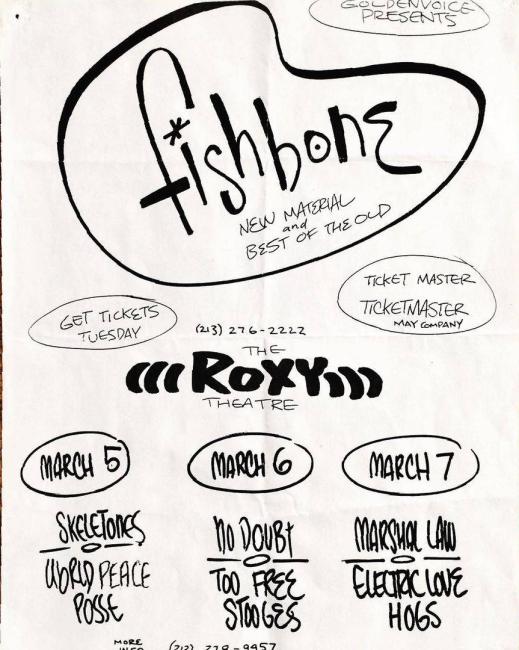 GOLDENVOICE
PRESENTS
fishbone
NEW MATERIAL
and
BEST OF THE OLD
TICKET MASTER
TICKETMASTER
MAY COMPANY
GET TICKETS
TUESDAY
(213) 276-2222
THE
ROXY
THEATRE
MARCH 5
SKELETONES
WORLD PEACE
POSSE
MARCH 6
NO DOUBT
TOO FREE
STOOGES
MARCH 7
MARSHAL LAW
ELECTRIC LOVE
HOGS
MORE
INFO